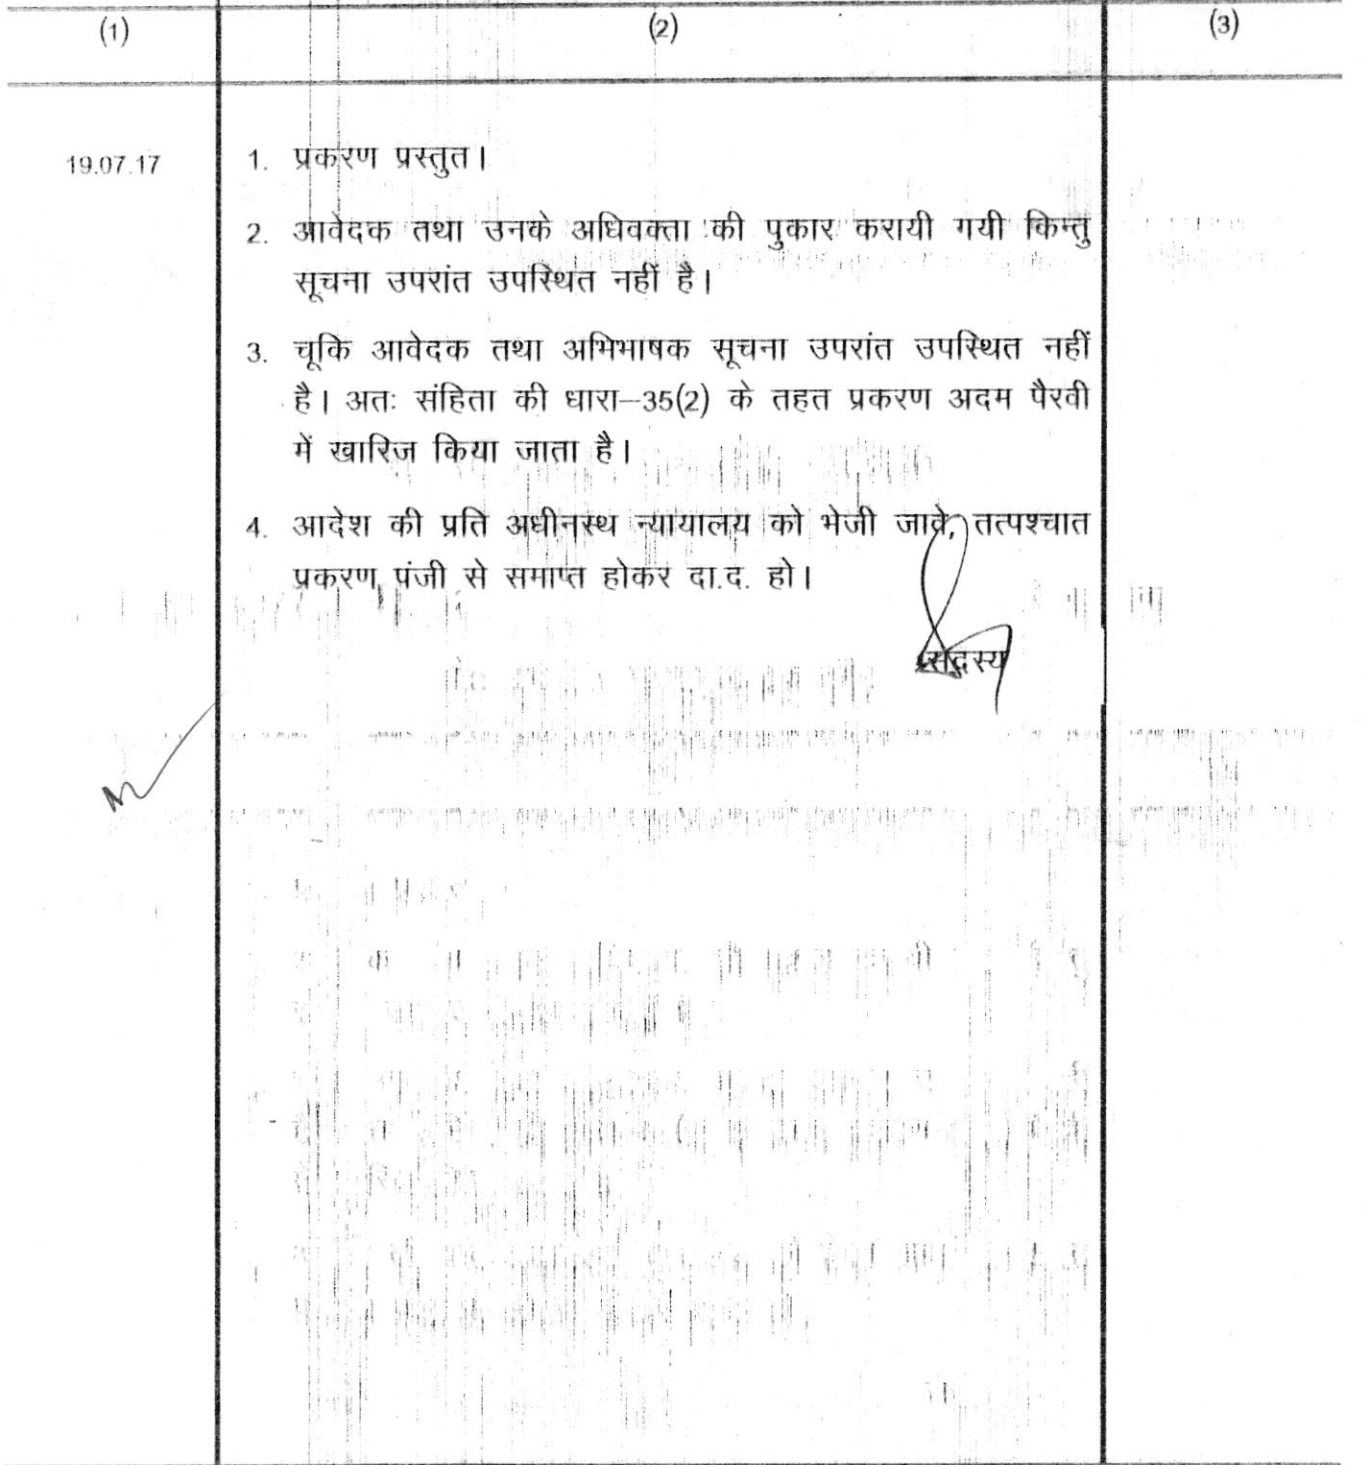 (1) (2) (3)
19.07.17 1. प्रकरण प्रस्तुत।
2. आवेदक तथा उनके अधिवक्ता की पुकार करायी गयी किन्तु
सूचना उपरांत उपस्थित नहीं है।
3. चूकि आवेदक तथा अभिभाषक सूचना उपरांत उपस्थित नहीं
है। अतः संहिता की धारा–35(2) के तहत प्रकरण अदम पैरवी
में खारिज किया जाता है।
4. आदेश की प्रति अधीनस्थ न्यायालय को भेजी जावे, तत्पश्चात
प्रकरण पंजी से समाप्त होकर दा.द. हो।
सदस्य